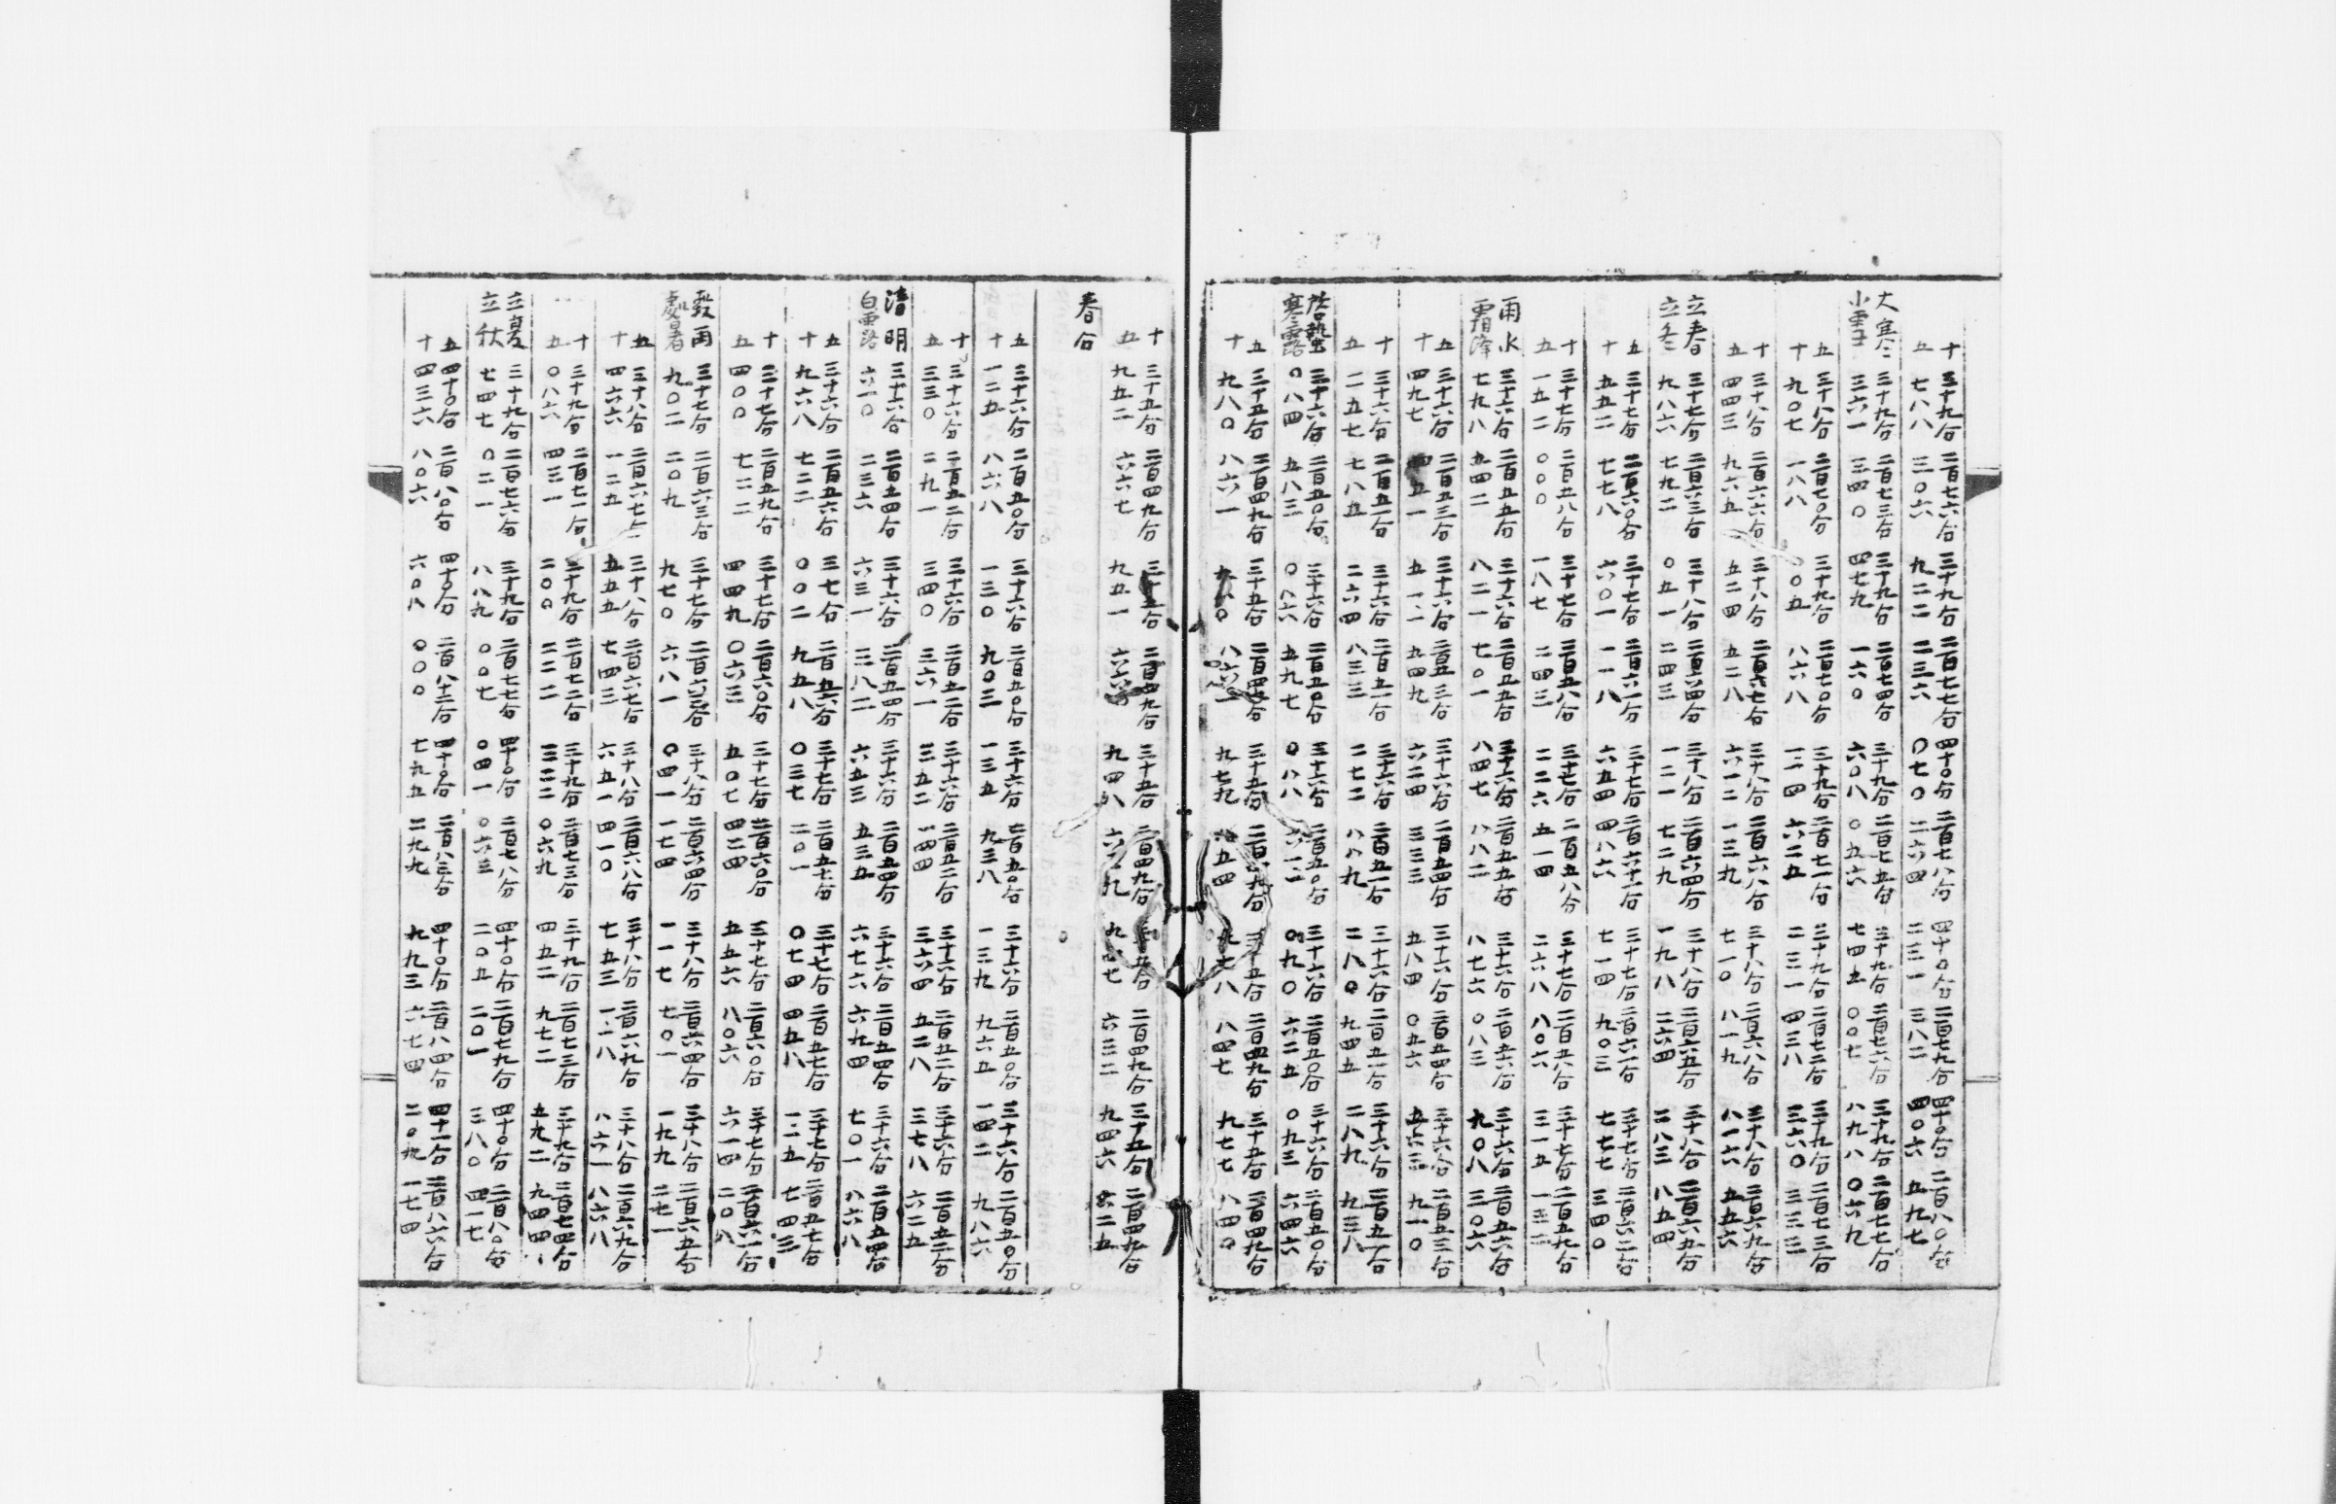 十 三十九分 二百七六分 三十九分 二百七七分 四十〇分 二百七八分 四十〇分 二百七九分 四十〇分 二百八〇分
五 七八八 三〇六 九二二 二三六 〇七〇 二六四 二三一 三八二 四〇六 五九七
大寒 三十九分 二百七三分 三十九分 二百七四分 三十九分 二百七五分 三十九分 二百七六分 三十九分 二百七七分
小雪 三六一 三四〇 四七九 一六〇 六〇八 〇五六 七四五 〇〇七 八九八 〇六九
五 三十八分 二百七〇分 三十九分 二百七〇分 三十九分 二百七一分 三十九分 二百七二分 三十九分 二百七三分
十 九〇七 一八八 〇五 八六八 一一四 六二五 二三一 四三八 三六〇 三三三
十 三十八分 二百六六分 三十八分 二百六七分 三十八分 二百六八分 三十八分 二百六八分 三十八分 二百六九分
五 四四三 九六五 五二四 五二八 六一二 一三九 七一〇 八一九 八一六 五五六
立春 三十七分 二百六三分 三十八分 二百六四分 三十八分 二百六四分 三十八分 二百六五分 三十八分 二百六五分
立冬 九八六 七九二 〇五一 二四三 一二一 七二九 一九八 二六四 二八三 八五四
五 三十七分 二百六〇分 三十七分 二百六一分 三十七分 二百六一分 三十七分 二百六一分 三十七分 二百六二分
十 五五二 七七八 六〇一 一一八 六五四 四八六 七一四 九〇三 七七七 三四〇
十 三十七分 二百五八分 三十七分 二百五八分 三十七分 二百五八分 三十七分 二百五八分 三十七分 二百五九分
五 一五二 〇〇〇 一八七 二四三 二二六 五一四 二六八 八〇六 三一五 一三二
雨水 三十六分 二百五五分 三十六分 二百五五分 三十六分 二百五五分 三十六分 二百五六分 三十六分 二百五六分
霜降 七九八 五四二 八二一 七〇一 八四七 八八二 八七六 〇八三 九〇八 三〇六
五 三十六分 二百五三分 三十六分 二百五三分 三十六分 二百五四分 三十六分 二百五四分 三十六分 二百五三分
十 四九七 四五一 五一一 九四九 六二四 三三三 五八四 〇五六 五六三 九一〇
十 三十六分 二百五一分 三十六分 二百五一分 三十六分 二百五一分 三十六分 二百五一分 三十六分 二百五一分
五 二五七 七八五 二六四 八三三 二七二 八八九 二八〇 九四五 二八九 九三八
啓蟄 三十六分 二百五〇分 三十六分 二百五〇分 三十六分 二百五〇分 三十六分 二百五〇分 三十六分 二百五〇分
寒露 〇八四 五八三 〇八六 五九七 〇八八 六一一 〇九〇 六二五 〇九三 六四六
五 三十五分 二百四九分 三十五分 二百四九分 三十五分 二百四九分 三十五分 二百四九分 三十五分 二百四九分
十 九八〇 八六一 九八〇 八六一 九七九 八五四 九七八 八四七 九七七 八四〇
十 三十五分 二百四九分 三十五分 二百四九分 三十五分 二百四九分 三十五分 二百四九分 三十五分 二百四九分
五 九五二 六六七 九五一 六六 九四八 六三九 九四七 六三二 九四六 六二五
春分
五 三十六分 二百五〇分 三十六分 二百五〇分 三十六分 二百五〇分 三十六分 二百五〇分 三十六分 二百五〇分
十 一二五 八六八 一三〇 九〇三 一三五 九三八 一三九 九六五 一四二 九八六
十 三十六分 二百五二分 三十六分 二百五二分 三十六分 二百五二分 三十六分 二百五二分 三十六分 二百五二分
五 三三〇 二九一 三四〇 三六一 三五二 一四四 三六四 五二八 三七八 六二五
清明 三十六分 二百五四分 三十六分 二百五四分 三十六分 二百五四分 三十六分 二百五四分 三十六分 二百五四分
白露 六一〇 二三六 六三一 三八二 六五三 五三五 六七六 六九四 七〇一 八六八
五 三十六分 二百五六分 三七分 二百五六分 三十七分 二百五七分 三十七分 二百五七分 三十七分 二百五七分
十 九六八 七二二 〇〇二 九五八 〇三七 二〇一 〇七四 四五八 一一五 七四三
十 三十七分 二百五九分 三十七分 二百六〇分 三十七分 二百六〇分 三十七分 二百六〇分 三十七分 二百六一分
五 四〇〇 七二二 四四九 〇六三 五〇七 四二四 五五六 八〇六 六一四 二〇八
穀雨 三十七分 二百六三分 三十七分 二百六三分 三十八分 二百六四分 三十八分 二百六四分 三十八分 二百六五分
處暑 九〇二 二〇九 九七〇 六八一 〇四一 一七四 一一七 七〇一 一九九 二七一
五 三十八分 二百六七分 三十八分 二百六七分 三十八分 二百六八分 三十八分 二百六九分 三十八分 二百六九分
十 四六六 一二五 五五五 七四三 六五一 四一〇 七五三 一一八 八六一 八六八
十 三十九分 二百七一分 三十九分 二百七二分 三十九分 二百七三分 三十九分 二百七三分 三十九分 二百七四分
五 〇八六 四三一 二〇〇 二二二 三二二 〇六九 四五二 九七二 五九二 九四四
立夏 三十九分 二百七六分 三十九分 二百七七分 四十〇分 二百七八分 四十〇分 二百七九分 四十〇分 二百八〇分
立秋 七四七 〇二一 八八九 〇〇七 〇四一 〇六三 二〇五 二〇一 三八〇 四一七
五 四十〇分 二百八〇分 四十〇分 二百八二分 四十〇分 二百八三分 四十〇分 二百八四分 四十一分 二百八六分
十 四三六 八〇六 六〇八 〇〇〇 七九五 二九九 九九三 六七四 二〇九 一七四